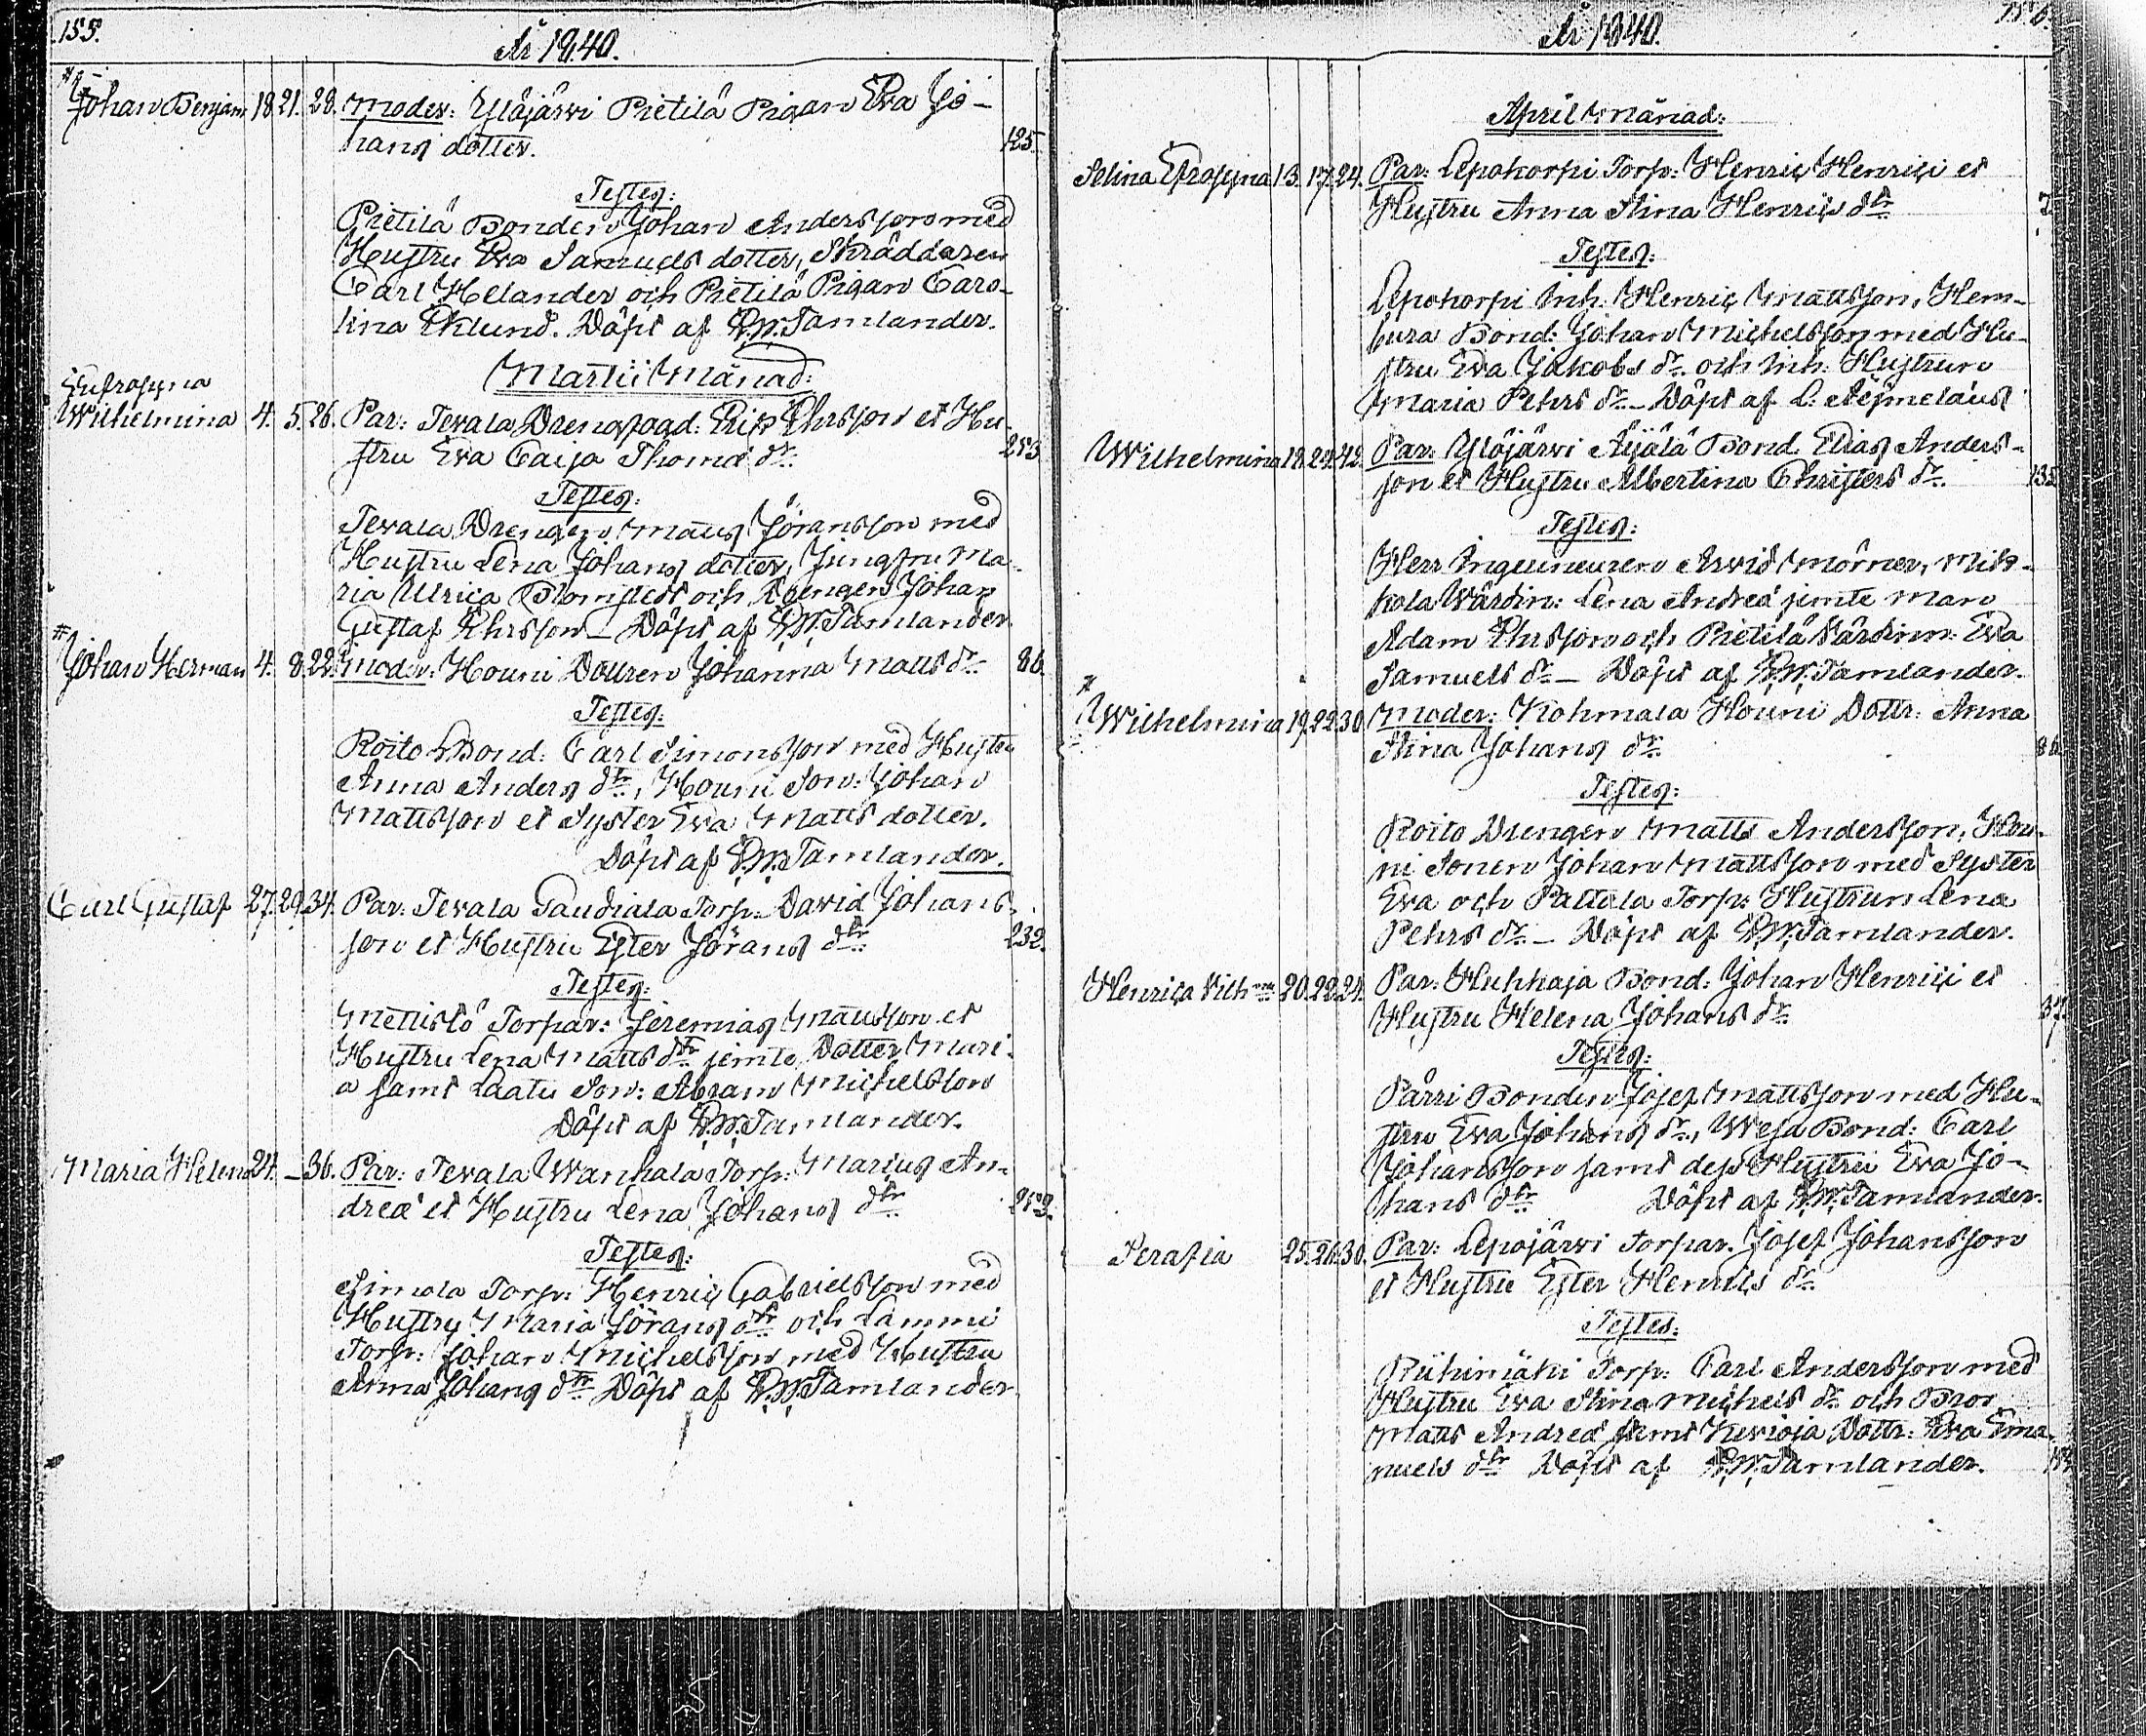 155.
År 1840.
Johan Benjam: 18. 21. 28. Moder: Ylöjärvi Pietilä Pigan Eva Jo-
hans dotter. 125.
Testes:
Pietilä Bonden Johan Andersson med
Hustru Eva Samuels dotter, Skräddaren
Carl Helander och Pietilä Pigan Caro-
lina Eklund. Döpt af P.W. Tamlander.
Martii Månad:
Eufrosyna
Wilhelmina 4. 5. 26. Par: Tevala Drengvaad: Erik Ehrsson et Hu-
stru Eva Caija Thomæ dr. 253
Testes:
Tevala Drengen Matts Göransson med
Hustru Lena Johans dotter, Jungfru Ma-
ria Ulrica Blomstedt och Drengen Johan
Gustaf Ehrsson – Döpt af P.W. Tamlander.
Johan Herman 4. 8. 22. Moder: Houni Dottren Johanna Matts dr. 86.
Testes:
Roito Bond: Carl Simonsson med Hustru
Anna Anders dtr, Houni Son: Johan
Mattsson et Syster Eva Matts dotter.
Döpt af P.W. Tamlander.
Carl Gustaf 27. 29. 34. Par: Tevala Taudiala Torp: David Johans-
son et Hustru Ester Görans dtr 232.
Testes:
Mettistö Torpar: Jeremias Mattsson et
Hustru Lena Matts dtr jemte Dotter Mari-
a samt Laatu Son: Abram Michelsson
Döpt af P.W. Tamlander.
Maria Helena 24. – 36. Par: Tevala Wanhala Torp: Marius An-
dreæ et Hustru Lena Johans dtr 253.
Testes:
Simola Torp: Henric Gabrielsson med
Hustru Maria Görans dtr och Lammi
Torp: Johan Michelsson med Hustru
Anna Johans dtr Döpt af P.W. Tamlander
156.
År 1840.
April Månad:
Selina Efrosyna 13. 17. 24. Par: Lepokorpi Torp: Henric Henrici et
Hustru Anna Stina Henrics dtr 7.
Testes:
Lepokorpi Inh: Henric Mattsson, Hem-
Bond: Johan Michelsson med Hu-
stru Eva Jakobs dr. och Inh: Hustrun
Maria Pehrs dr. – Döpt af L. Aejmelæus
Wilhelmina 18. 29. 42. Par: Ylöjärvi Äijälä Bond. Elias Anders-
son et Hustru Albertina Christers dr. 135
Testes:
Herr Ingenieuren Arvid Mörner, Mik-
kola Wärdin: Lena Andreæ jemte man
Adam Ehrsson och Pietilä Värdinn: Eva
Samuels dr – Döpt af P.W. Tamlander.
Wilhelmina 19. 22. 30. Moder: Kohmala Houni Dottr: Anna
Stina Johans dr. 86.
Testes:
Roito Drengen Matts Andersson, Hou-
ni Sonen Johan Mattsson med Syster
Eva och Pattala Torp: Hustrun Lena
Pehrs dr. – Döpt af P.W. Tamlander.
Henrica Vilh:na 20. 22. 24. Par: Huhkaja Bond: Johan Henrici et
Hustru Helena Johans dr. 37.
Testes:
Pärri Bonden Josef Mattsson med Hu-
stru Eva Johans dr., Wesa Bond: Carl
Johansson samt dess Hustru Eva Jo-
hans dtr Döpt af P.W. Tamlander.
Serafia 25. 26. 30. Par: Lepojärvi Torpar. Josef Johansson
et Hustru Ester Henrics dr.
Testes:
Riihimäki Torp: Carl Andersson med
Hustru Eva Stina Michels dr. och Bror
Matts Andreæ samt Kevioja Dottr: Eva Ema-
nuels dtr Döpt af P.W. Tamlander.